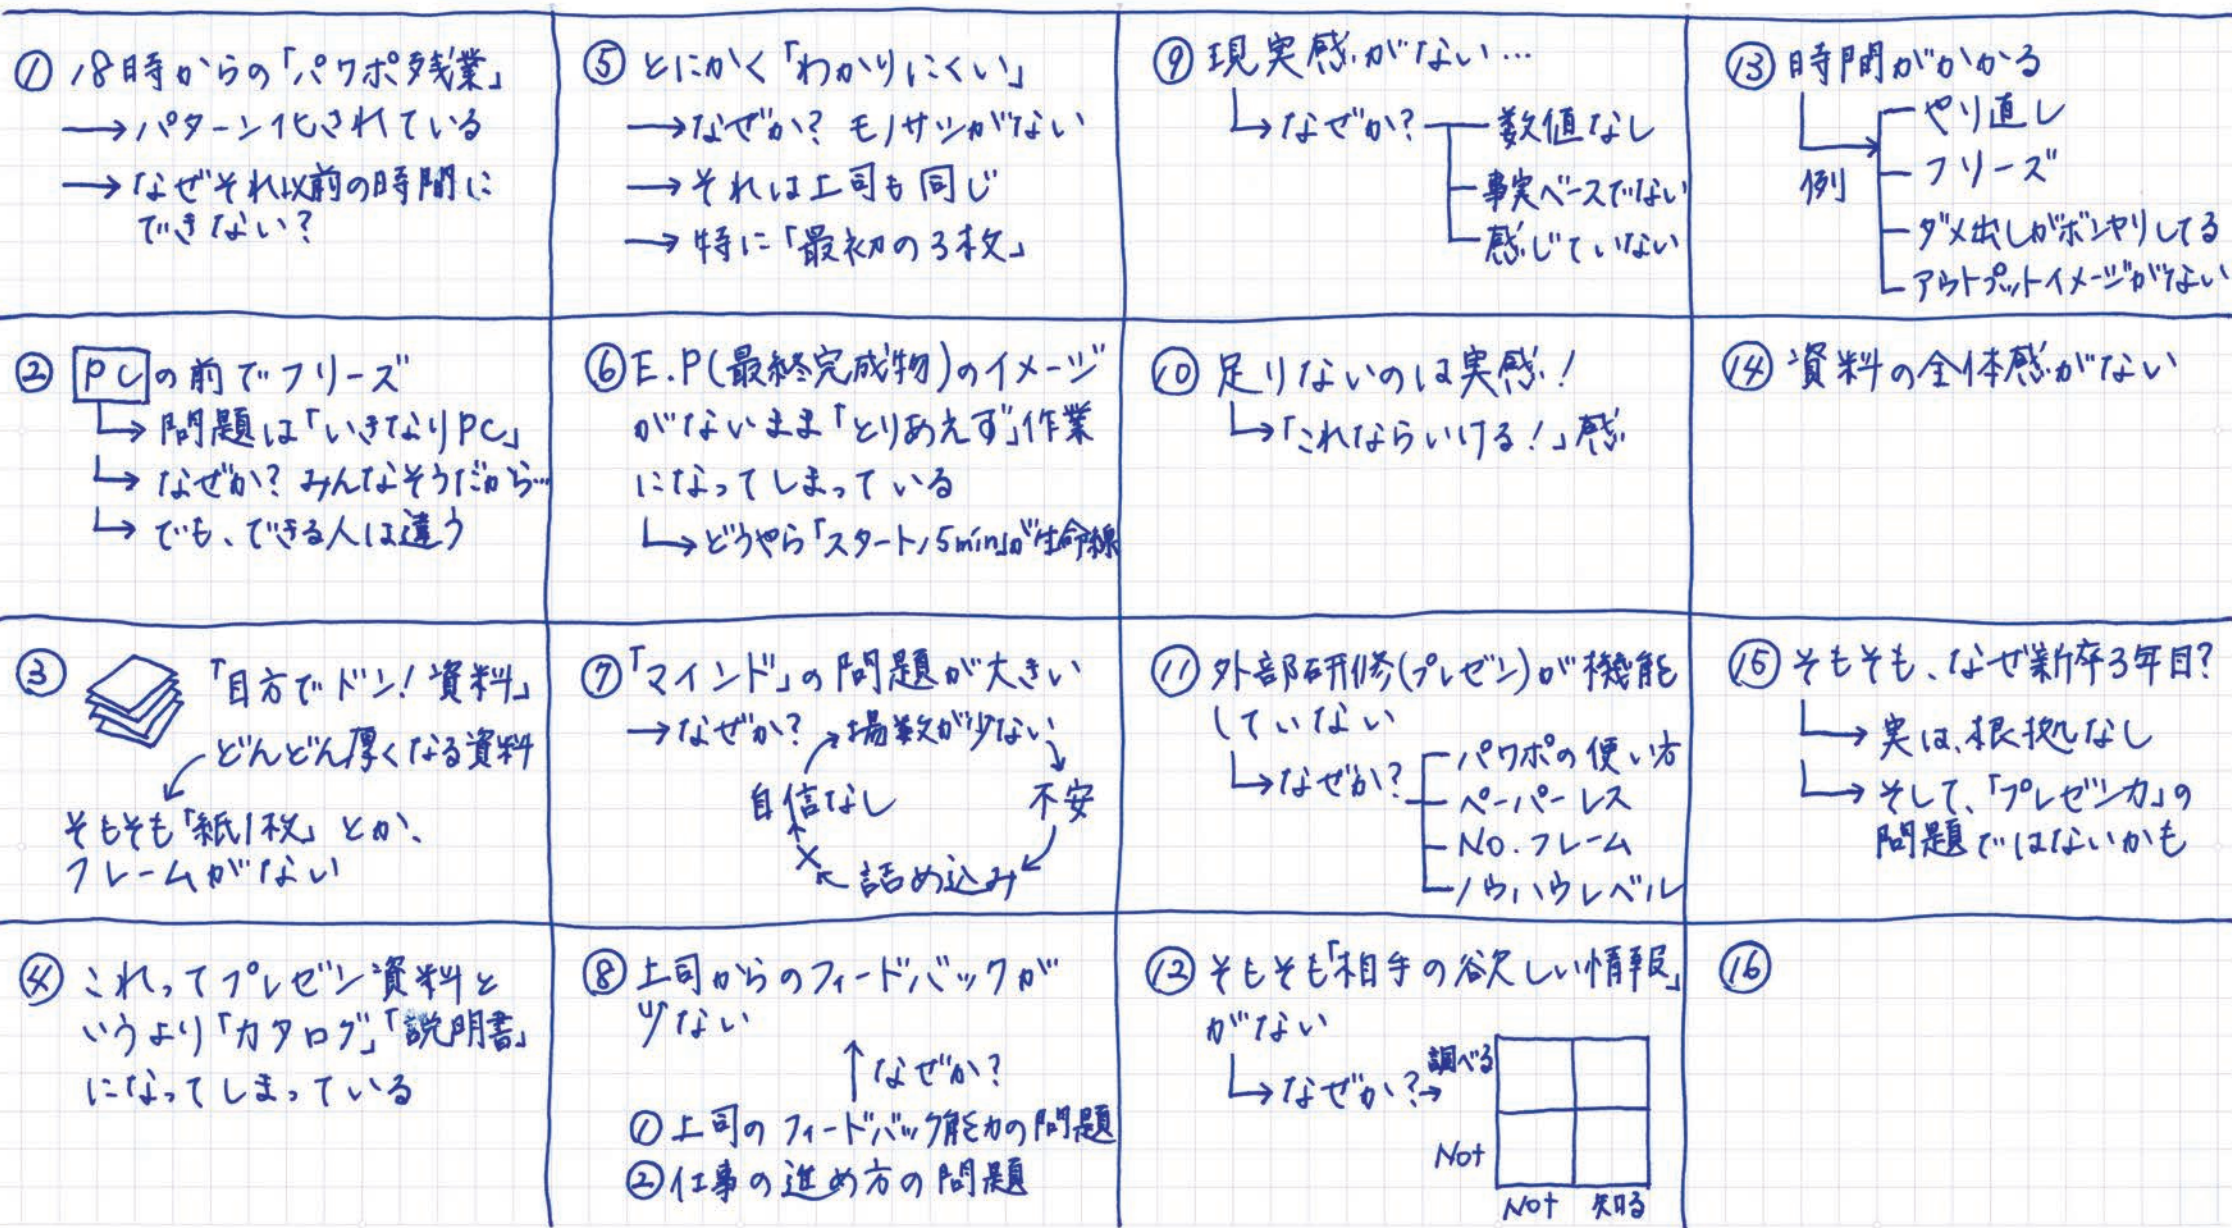 ① 18時からの「パワポ残業」
→パターン化されている
→なぜそれ以前の時間に
できない?
② PCの前でフリーズ
→問題は「いきなりPC」
→なぜか? みんなそうだから…
→でも、できる人は違う
③「目方でドン! 資料」
どんどん厚くなる資料
そもそも「紙1枚」とか、
フレームがない
④ これってプレゼン資料と
いうより「カタログ」「説明書」
になってしまっている
⑤ とにかく「わかりにくい」
→なぜか? モノサシがない
→それは上司も同じ
→特に「最初の3枚」
⑥ E.P(最終完成物)のイメージ
がないまま「とりあえず」作業
になってしまっている
→どうやら「スタート15min」が生命線
⑦「マインド」の問題が大きい
→なぜか? 場数が少ない
自信なし 不安
詰め込み
⑧ 上司からのフィードバックが
少ない
↑なぜか?
①上司のフィードバック能力の問題
②仕事の進め方の問題
⑨ 現実感がない…
→なぜか? 数値なし
事実ベースでない
感じていない
⑩ 足りないのは実感!
→「これならいける!」感
⑪ 外部研修(プレゼン)が機能
していない
→なぜか? パワポの使い方
ペーパーレス
NO.フレーム
ノウハウレベル
⑫ そもそも「相手の欲しい情報」
がない
→なぜか?→ 調べる
Not
Not 知る
⑬ 時間がかかる
例 やり直し
フリーズ
ダメ出しがボンヤリしてる
アウトプットイメージがない
⑭ 資料の全体感がない
⑮ そもそも、なぜ新卒3年目?
→実は、根拠なし
→そして、「プレゼン力」の
問題ではないかも
⑯